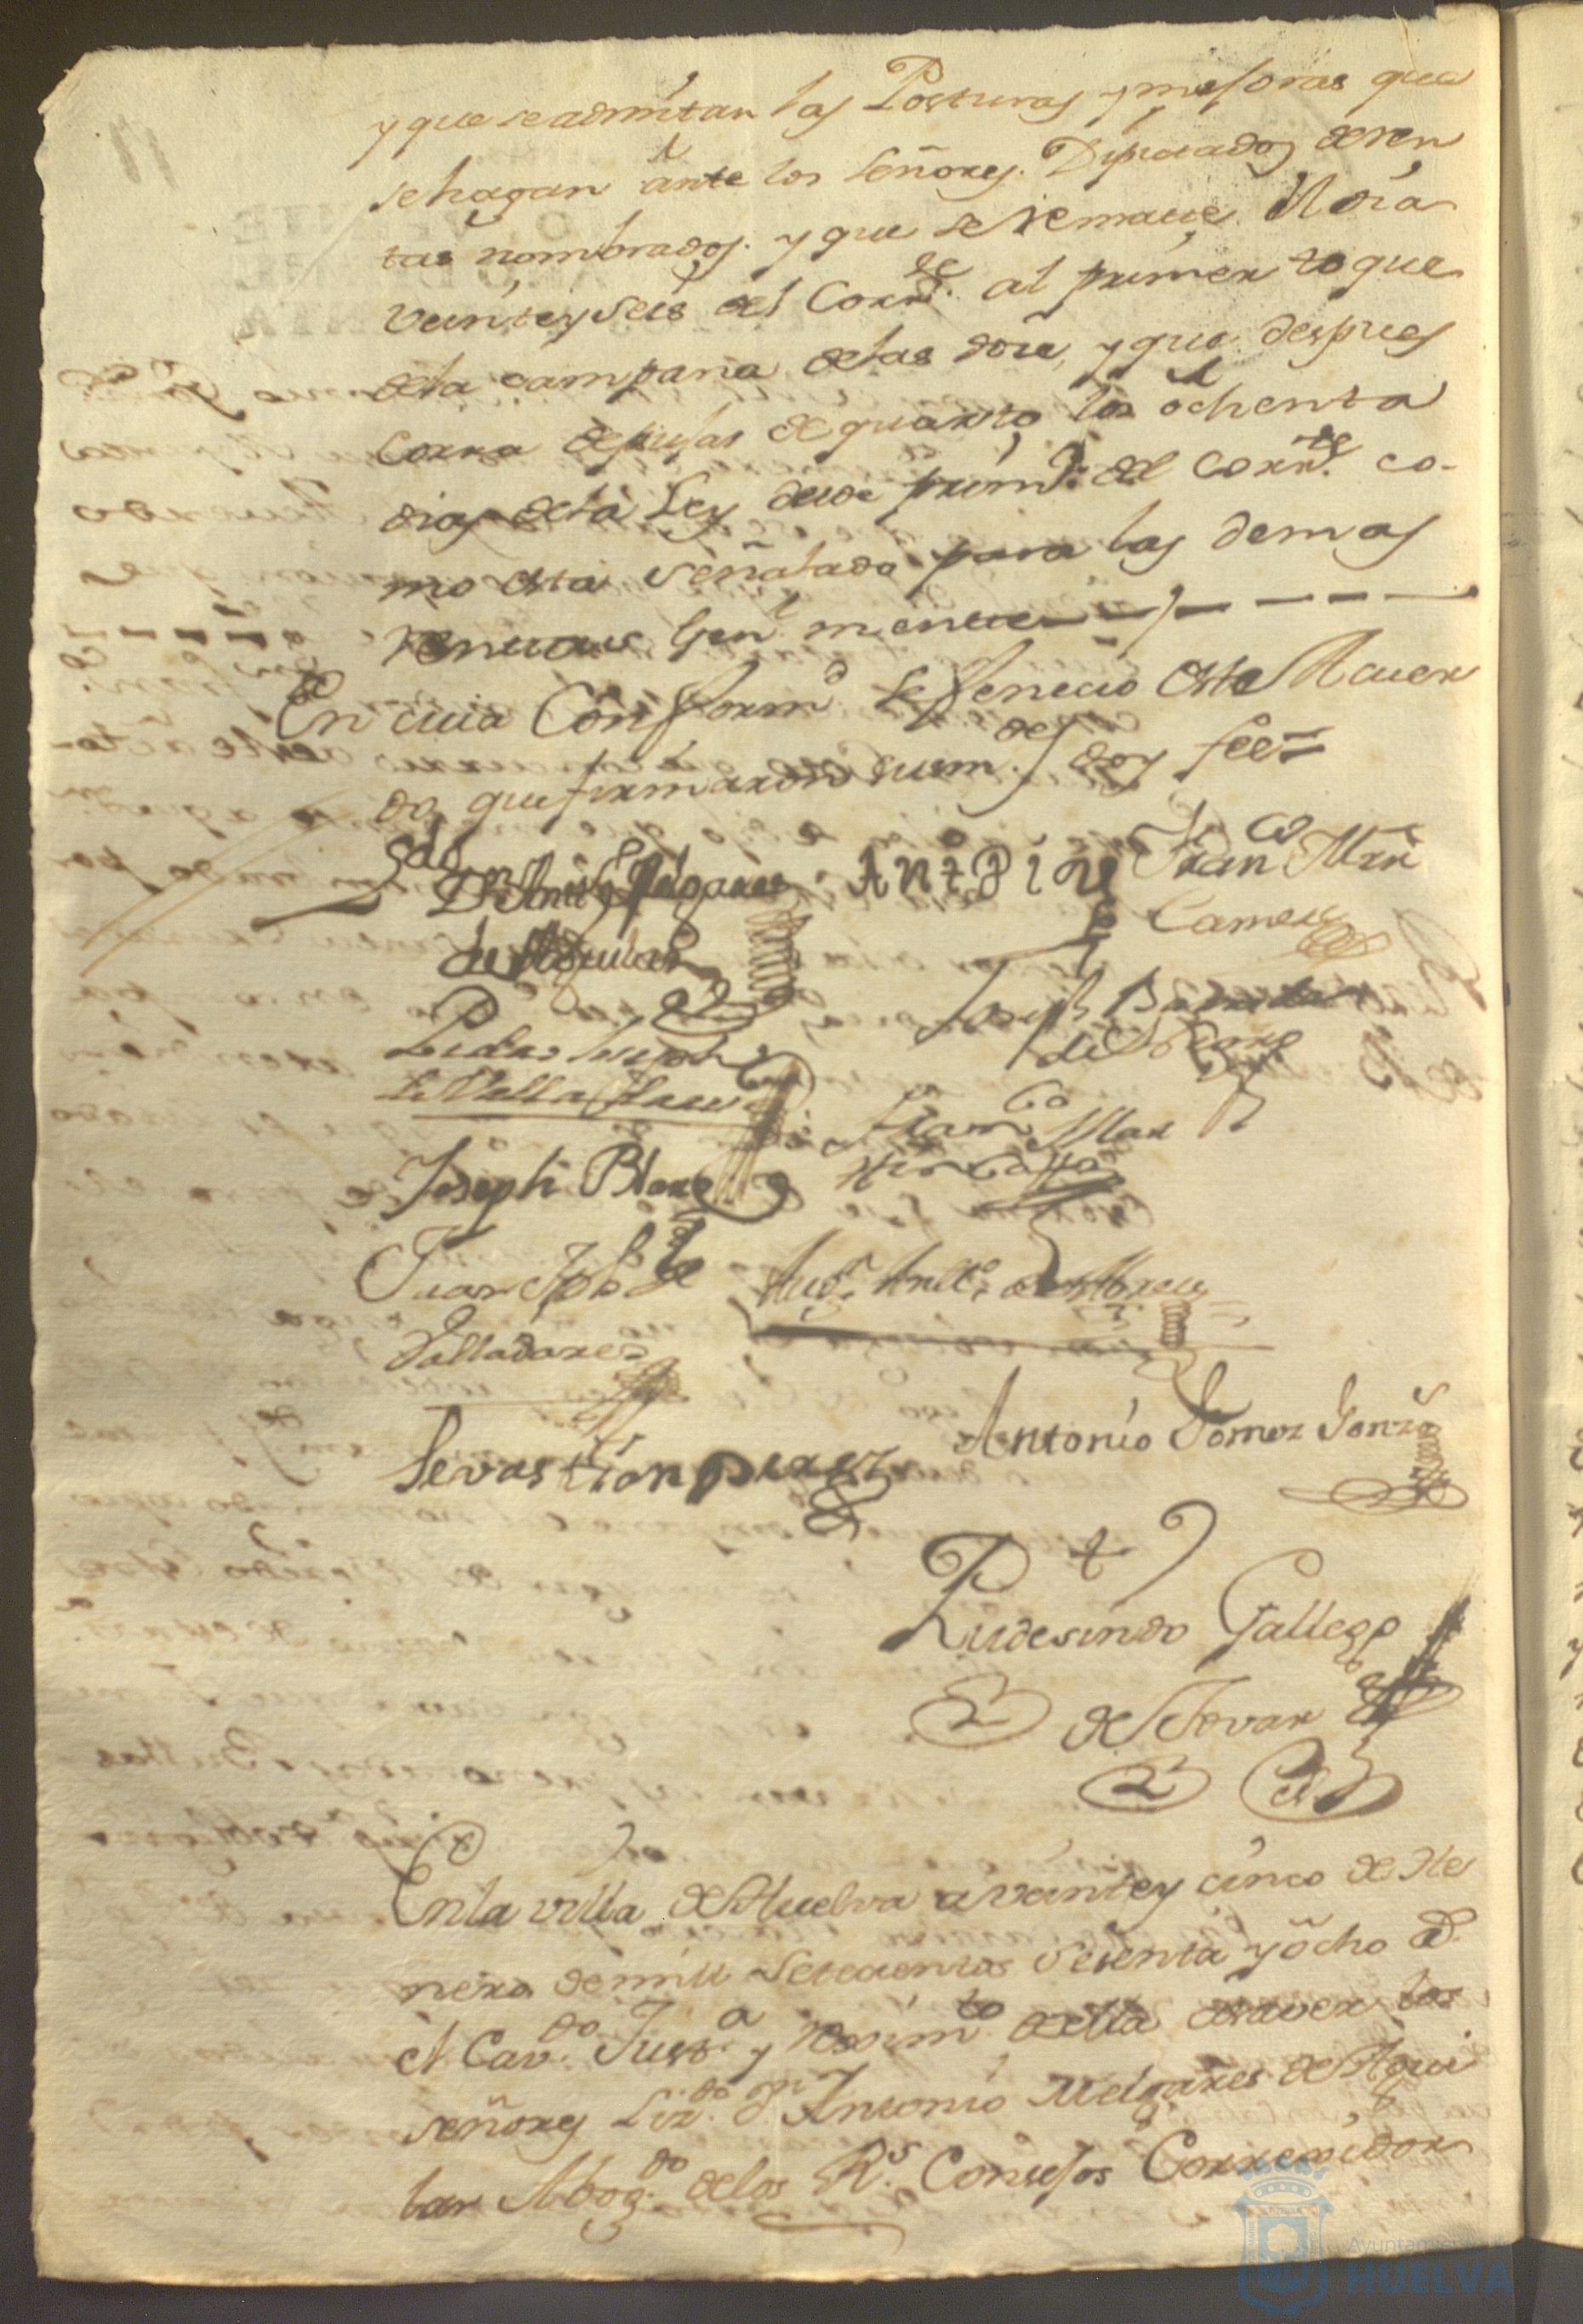 y que se admitan las Posturas y mejoras que
se hagan ante los Señores Diputados de ren
tas nombrados. y que se remate el dia
veinte y seis del Corr.te al primer toque
de la campana de las doze, y que despues
corra depujas de quarto los ochenta
dias de la Ley desde prim.o del Corr.te co-
mo esta señalado para las demas
rentas Gen.l mente
En cuia Conform.d se fenecio este Acuer
do, que firmaron sus m.des doy fee=
Ldo Dn Antt.o Melgarejo
de Aguilar
AntPire
Fran.co Mrn
Camero
Pedro Joseph
de Villa
Joseph
de
Joseph Blanco
Fran.co Mar
tin
Juan Joseph de
Valladares
Antt.o de
Sevastian perez
Antonio Gomez Gonz.s
Rudesindo Gallego
de Tovar
En la villa de Huelva a veinte y cinco de He
nero de mill Setecientos sesenta y ocho a.s
el Cav.do Just.a y Reximto de ella es a saver los
señores Liz.do Dn Antonio Melgarejo de Agui
lar Abog.do de los R.s Consejos Correxidor
Ayuntamiento
HUELVA